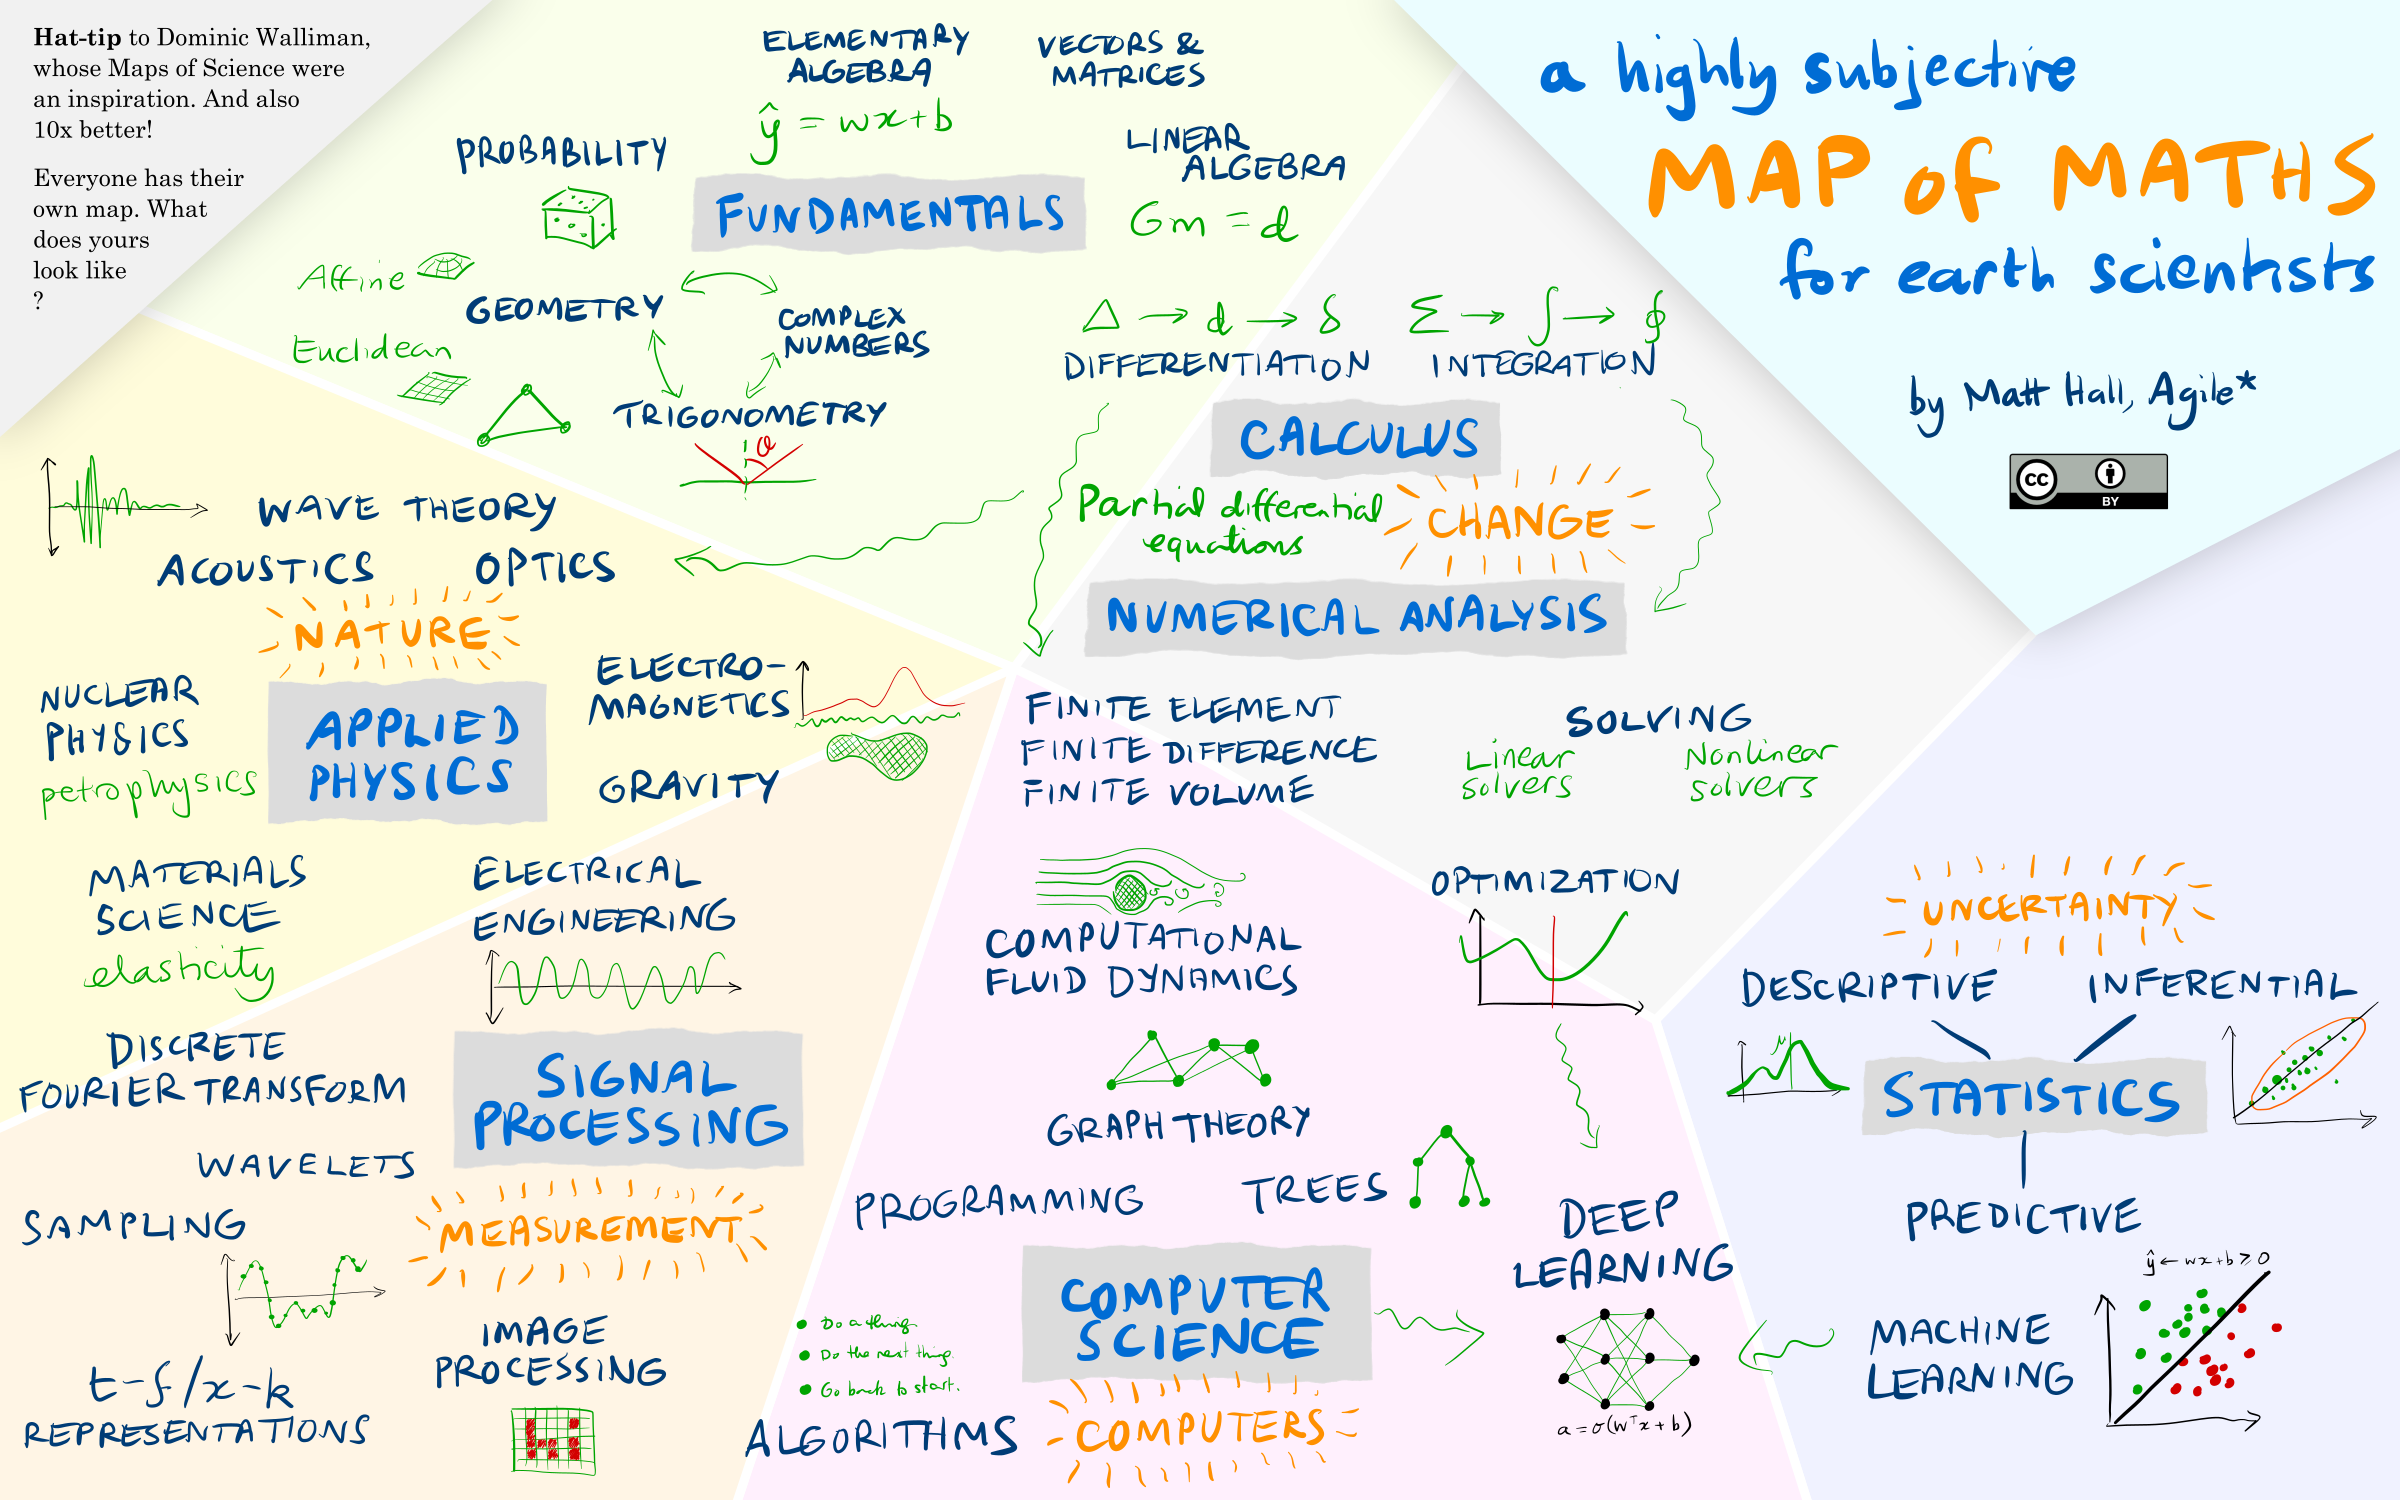 Hat-tip to Dominic Walliman,
whose Maps of Science were
an inspiration. And also
10x better!
Everyone has their
own map. What
does yours
look like
?
a highly subjective
MAP of MATHS
for earth scientists
by Matt Hall, Agile*
CC BY
ELEMENTARY
ALGEBRA
ŷ = wx+b
VECTORS &
MATRICES
PROBABILITY
LINEAR
ALGEBRA
Gm = d
FUNDAMENTALS
Affine
GEOMETRY
COMPLEX
NUMBERS
Euclidean
TRIGONOMETRY
θ
Δ → d → δ
DIFFERENTIATION
Σ → ∫ → ∮
INTEGRATION
CALCULUS
Partial differential
equations
CHANGE
NUMERICAL ANALYSIS
FINITE ELEMENT
FINITE DIFFERENCE
FINITE VOLUME
SOLVING
Linear
solvers
Nonlinear
solvers
OPTIMIZATION
WAVE THEORY
ACOUSTICS
OPTICS
NATURE
NUCLEAR
PHYSICS
petrophysics
APPLIED
PHYSICS
ELECTRO-
MAGNETICS
GRAVITY
MATERIALS
SCIENCE
elasticity
ELECTRICAL
ENGINEERING
DISCRETE
FOURIER TRANSFORM
SIGNAL
PROCESSING
WAVELETS
SAMPLING
MEASUREMENT
t-f/x-k
REPRESENTATIONS
IMAGE
PROCESSING
Hi
COMPUTATIONAL
FLUID DYNAMICS
GRAPH THEORY
PROGRAMMING
TREES
DEEP
LEARNING
a = σ(wᵀx + b)
COMPUTER
SCIENCE
Do a thing.
Do the next thing.
Go back to start.
ALGORITHMS
COMPUTERS
UNCERTAINTY
DESCRIPTIVE
INFERENTIAL
μ
STATISTICS
PREDICTIVE
ŷ ← wx+b ≥ 0
MACHINE
LEARNING